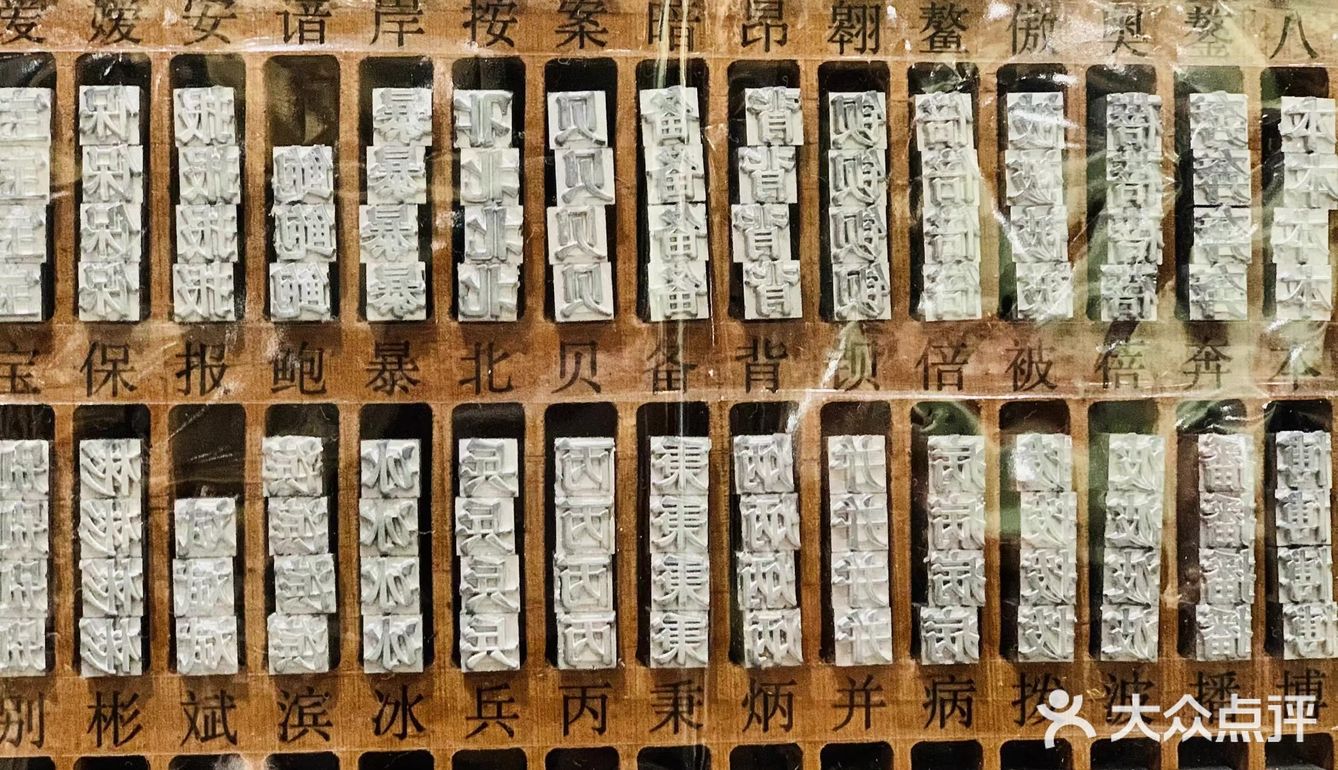 爱 媛 安 谙 岸 按 案 暗 昂 翱 鳌 傲 奥 鏊 八
宝 保 报 鲍 暴 北 贝 备 背 钡 倍 被 蓓 奔 本
别 彬 斌 滨 冰 兵 丙 秉 炳 并 病 拨 波 播 博
大众点评